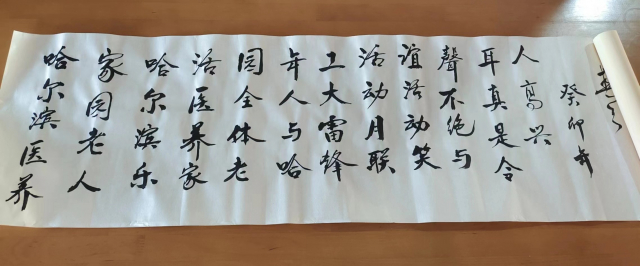 哈尔滨医养
家园老人
哈尔滨乐
活医养家
园全体老
年人与哈
工大雷锋
活动月联
谊活动笑
聲不绝与
耳真是令
人高兴
癸卯年